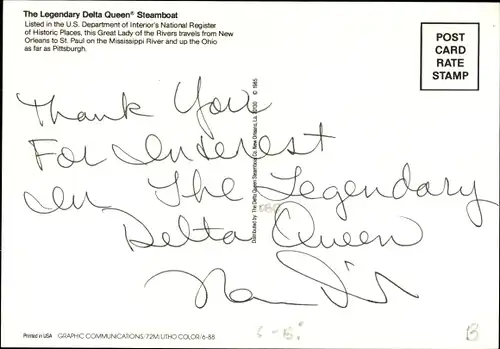 The Legendary Delta Queen® Steamboat
Listed in the U.S. Department of Interior's National Register
of Historic Places, this Great Lady of the Rivers travels from New
Orleans to St. Paul on the Mississippi River and up the Ohio
as far as Pittsburgh.
POST
CARD
RATE
STAMP
Thank You
For Interest
In The Legendary
Delta Queen
Distributed by The Delta Queen Steamboat Co. New Orleans, La. 70130 © 1985
Printed in USA GRAPHIC COMMUNICATIONS/72M/LITHO COLOR/6-88
B